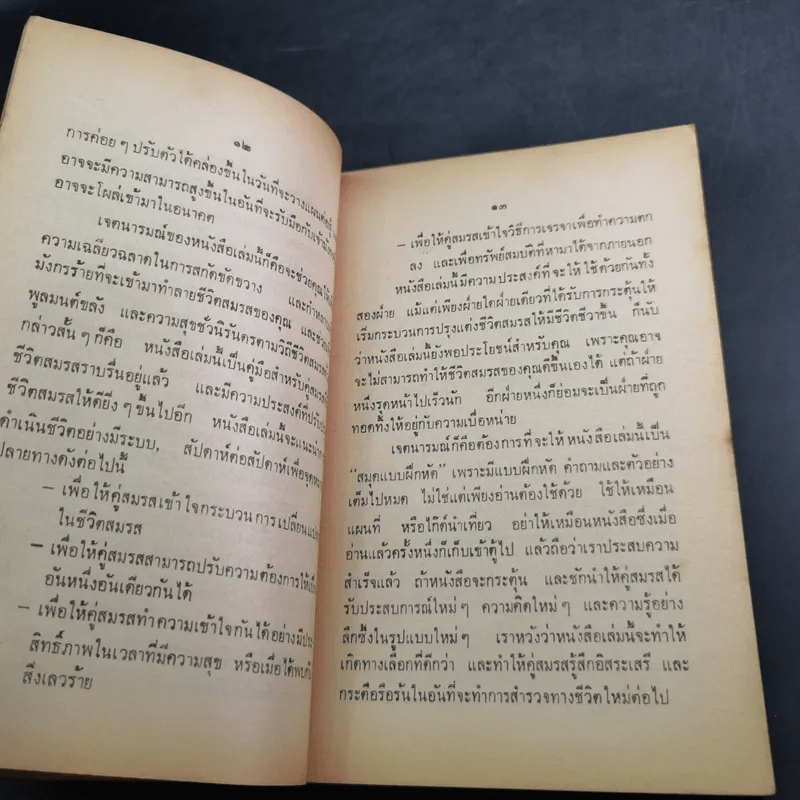 ๑๒
การค่อย ๆ ปรับตัวได้คล่องขึ้นในวันที่จะวางแผน
อาจจะมีความสามารถสูงขึ้นในอันที่จะรับมือกับ
อาจจะโผล่เข้ามาในอนาคต
เจตนารมณ์ของหนังสือเล่มนี้ก็คือจะช่วยคุณ
ความเฉลียวฉลาดในการสกัดขัดขวาง และ
มังกรร้ายที่จะเข้ามาทำลายชีวิตสมรสของคุณ และ
พูลมนต์ขลัง และความสุขชั่วนิรันดรตามวิถีชีวิตสมรส
กล่าวสั้น ๆ ก็คือ หนังสือเล่มนี้เป็นคู่มือสำหรับคู่สมรส
ชีวิตสมรสราบรื่นอยู่แล้ว และมีความประสงค์ที่
ชีวิตสมรสให้ดียิ่ง ๆ ขึ้นไปอีก หนังสือเล่มนี้จะแนะนำ
ดำเนินชีวิตอย่างมีระบบ, สัปดาห์ต่อสัปดาห์เพื่อ
ปลายทางดังต่อไปนี้
– เพื่อให้คู่สมรสเข้าใจกระบวนการ
ในชีวิตสมรส
– เพื่อให้คู่สมรสสามารถปรับความต้องการให้
อันหนึ่งอันเดียวกันได้
– เพื่อให้คู่สมรสทำความเข้าใจกันได้อย่างมี
สิทธิ์ภาพในเวลาที่มีความสุข หรือเมื่อได้พบ
สิ่งเลวร้าย
๑๓
– เพื่อให้คู่สมรสเข้าใจวิธีการเจรจาเพื่อทำความตก
ลง และเพื่อทรัพย์สมบัติที่หามาได้จากภายนอก
หนังสือเล่มนี้มีความประสงค์ที่จะให้ใช้ด้วยกันทั้ง
สองฝ่าย แม้แต่เพียงฝ่ายใดฝ่ายเดียวที่ได้รับการกระตุ้นให้
เริ่มกระบวนการปรุงแต่งชีวิตสมรสให้มีชีวิตชีวาขึ้น ก็นับ
ว่าหนังสือเล่มนี้ยังพอประโยชน์สำหรับคุณ เพราะคุณอาจ
จะไม่สามารถทำให้ชีวิตสมรสของคุณดีขึ้นเองได้ แต่ถ้าฝ่าย
หนึ่งรุดหน้าไปเร็วนัก อีกฝ่ายหนึ่งก็ย่อมจะเป็นฝ่ายที่ถูก
ทอดทิ้งให้อยู่กับความเบื่อหน่าย
เจตนารมณ์ก็คือต้องการที่จะให้หนังสือเล่มนี้เป็น
“สมุดแบบฝึกหัด” เพราะมีแบบฝึกหัด คำถามและตัวอย่าง
เต็มไปหมด ไม่ใช่แต่เพียงอ่านต้องใช้ด้วย ใช้ให้เหมือน
แผนที่ หรือไก๊ด์นำเที่ยว อย่าให้เหมือนหนังสือซึ่งเมื่อ
อ่านแล้วครั้งหนึ่งก็เก็บเข้าตู้ไป แล้วถือว่าเราประสบความ
สำเร็จแล้ว ถ้าหนังสือจะกระตุ้น และชักนำให้คู่สมรสได้
รับประสบการณ์ใหม่ ๆ ความคิดใหม่ ๆ และความรู้อย่าง
ลึกซึ้งในรูปแบบใหม่ ๆ เราหวังว่าหนังสือเล่มนี้จะทำให้
เกิดทางเลือกที่ดีกว่า และทำให้คู่สมรสรู้สึกอิสระเสรี และ
กระตือรือร้นในอันที่จะทำการสำรวจทางชีวิตใหม่ต่อไป